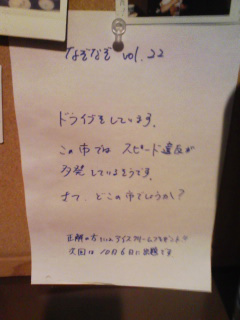 なぞなぞ vol.22
ドライブをしています。
この市では スピード違反が
多発しているそうです。
さて、どこの市でしょうか?
正解の方には アイスクリームプレゼント
次回は 10月6日に出題です